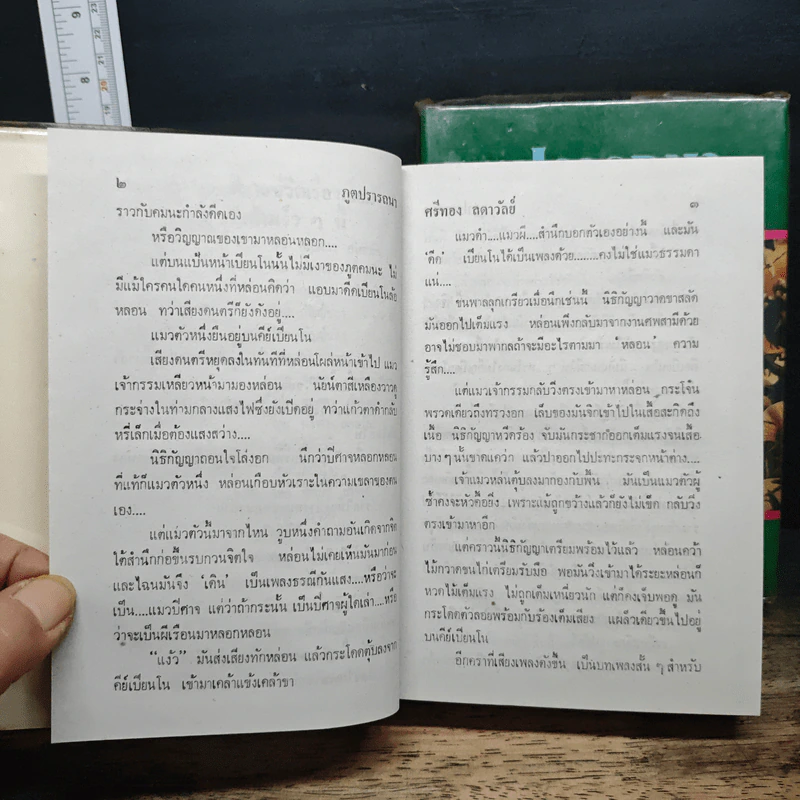 ๒ ภูตปรารถนา
ราวกับคมนะกำลังดีดเอง
หรือวิญญาณของเขามาหล่อนหลอก....
แต่บนแป้นหน้าเปียนโนนั้นไม่มีเงาของภูตคมนะ ไม่
มีแม้ใครคนใดคนหนึ่งที่หล่อนคิดว่า แอบมาดีดเปียนโนล้อ
หลอน ทว่าเสียงดนตรีก็ยังดังอยู่....
แมวตัวหนึ่งยืนอยู่บนคีย์เปียนโน
เสียงดนตรีหยุดลงในทันทีที่หล่อนโผล่หน้าเข้าไป แมว
เจ้ากรรมเหลียวหน้ามามองหล่อน นัยน์ตาสีเหลืองวาวดู
กระจ่างในท่ามกลางแสงไฟซึ่งยังเปิดอยู่ ทว่าแก้วตาดำกลับ
หรี่เล็กเมื่อต้องแสงสว่าง....
นิธิกัญญาถอนใจโล่งอก นึกว่าปีศาจหลอกหลอน
ที่แท้ก็แมวตัวหนึ่ง หล่อนเกือบหัวเราะในความเขลาของตน
เอง....
แต่แมวตัวนี้มาจากไหน วูบหนึ่งคำถามอันเกิดจากจิต
ใต้สำนึกก่อขึ้นรบกวนจิตใจ หล่อนไม่เคยเห็นมันมาก่อน
และไฉนมันจึง 'เดิน' เป็นเพลงธรณีกันแสง....หรือว่าจะ
เป็น....แมวปีศาจ แต่ว่าถ้ากระนั้น เป็นปีศาจผู้ใดเล่า....หรือ
ว่าจะเป็นผีเรือนมาหลอกหลอน
"แง้ว" มันส่งเสียงทักหล่อน แล้วกระโดดตุ้บลงจาก
คีย์เปียนโน เข้ามาเคล้าแข้งเคล้าขา
ศรีทอง ลดาวัลย์ ๓
แมวดำ....แมวผี....สำนึกบอกตัวเองอย่างนี้ และมัน
'ดีด' เปียนโนได้เป็นเพลงด้วย........คงไม่ใช่แมวธรรมดา
แน่....
ขนพาลลุกเกรียวเมื่อนึกเช่นนี้ นิธิกัญญาวาดขาสลัด
มันออกไปเต็มแรง หล่อนเพิ่งกลับมาจากงานศพสามีด้วย
อาจไม่ชอบมาพากลถ้าจะมีอะไรตามมา 'หลอน' ความ
รู้สึก....
แต่แมวเจ้ากรรมกลับวิ่งตรงเข้ามาหาหล่อน กระโจน
พรวดเดียวถึงทรวงอก เล็บของมันจิกเข้าไปในเสื้อสะกิดถึง
เนื้อ นิธิกัญญาหวีดร้อง จับมันกระชากออกเต็มแรงจนเสื้อ
บางๆ นั้นขาดแคว่ก แล้วปาออกไปปะทะกระจกหน้าต่าง....
เจ้าแมวหล่นตุ้บลงมากองกับพื้น มันเป็นแมวตัวผู้
ซ้ำคงจะหัวดื้อยิ่ง เพราะแม้ถูกขว้างแล้วก็ยังไม่เข็ด กลับวิ่ง
ตรงเข้ามาหาอีก
แต่คราวนี้นิธิกัญญาเตรียมพร้อมไว้แล้ว หล่อนคว้า
ไม้กวาดขนไก่เตรียมรับมือ พอมันวิ่งเข้ามาได้ระยะหล่อนก็
หวดไม้เต็มแรง ไม่ถูกเต็มเหนี่ยวนัก แต่ก็คงเจ็บพอดู มัน
กระโดดตัวลอยพร้อมกับร้องเต็มเสียง แผล็วเดียวขึ้นไปอยู่
บนคีย์เปียนโน
อีกคราที่เสียงเพลงดังขึ้น เป็นบทเพลงสั้น ๆ สำหรับ
9
8
20
19